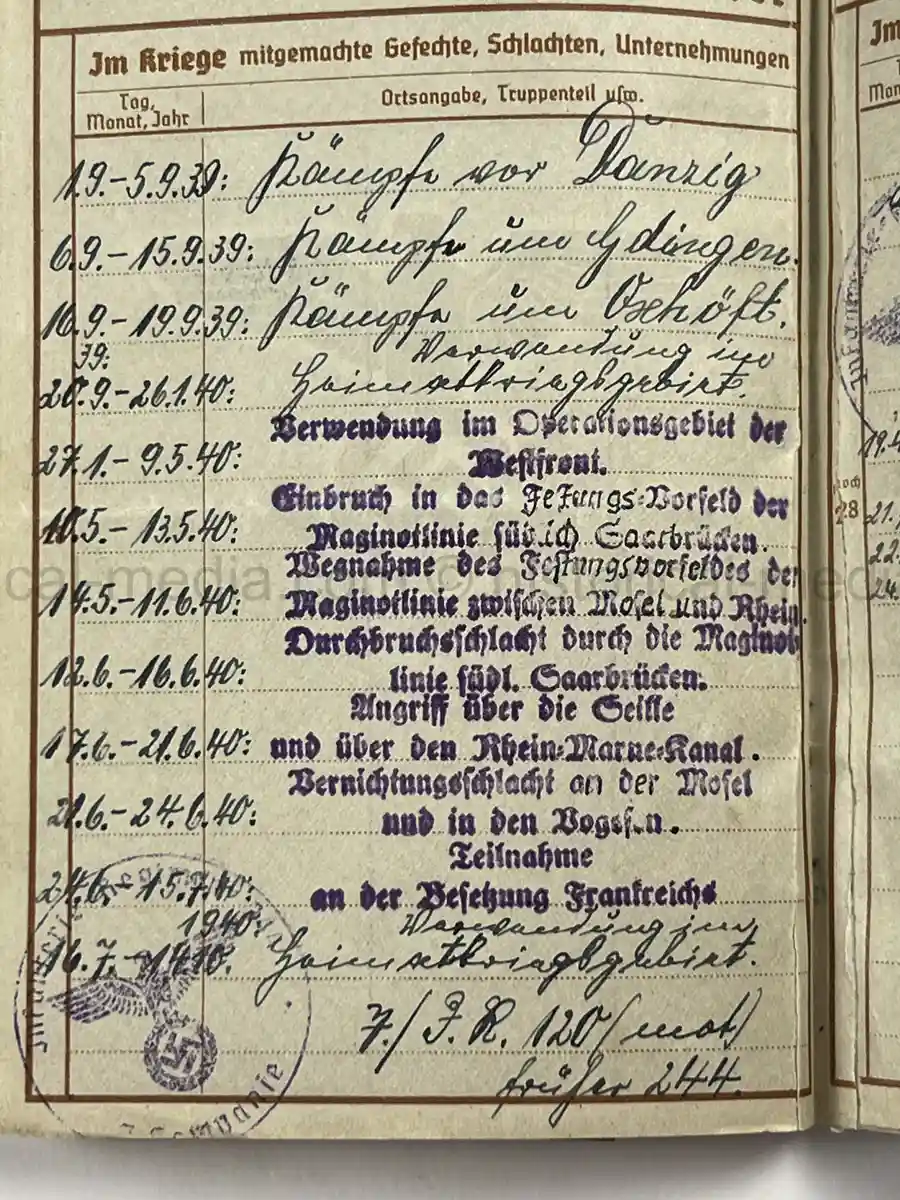 Im Kriege mitgemachte Gefechte, Schlachten, Unternehmungen
Tag, Monat, Jahr
Ortsangabe, Truppenteil usw.
1.9.-5.9.39: Kämpfe vor Danzig
6.9.-15.9.39: Kämpfe um Gdingen.
16.9.-19.9.39: Kämpfe um Oxhöft.
39: Verwendung im
20.9.-26.1.40: Heimatkriegsgebiet.
Verwendung im Operationsgebiet der
27.1.-9.5.40: Westfront.
Einbruch in das Festungs-Vorfeld der
10.5.-13.5.40: Maginotlinie südlich Saarbrücken.
Wegnahme des Festungsvorfeldes der
14.5.-11.6.40: Maginotlinie zwischen Mosel und Rhein.
Durchbruchsschlacht durch die Maginot
12.6.-16.6.40: linie südl. Saarbrücken.
Angriff über die Seille
17.6.-21.6.40: und über den Rhein-Marne-Kanal.
Vernichtungsschlacht an der Mosel
21.6.-24.6.40: und in den Vogesen.
Teilnahme
24.6.-15.7.40: an der Besetzung Frankreichs
1940: Verwendung im
16.7.- Heimatkriegsgebiet.
7./J.R. 120 (mot)
früher 244.
Kompanie
Im
28
21.
22.
24.